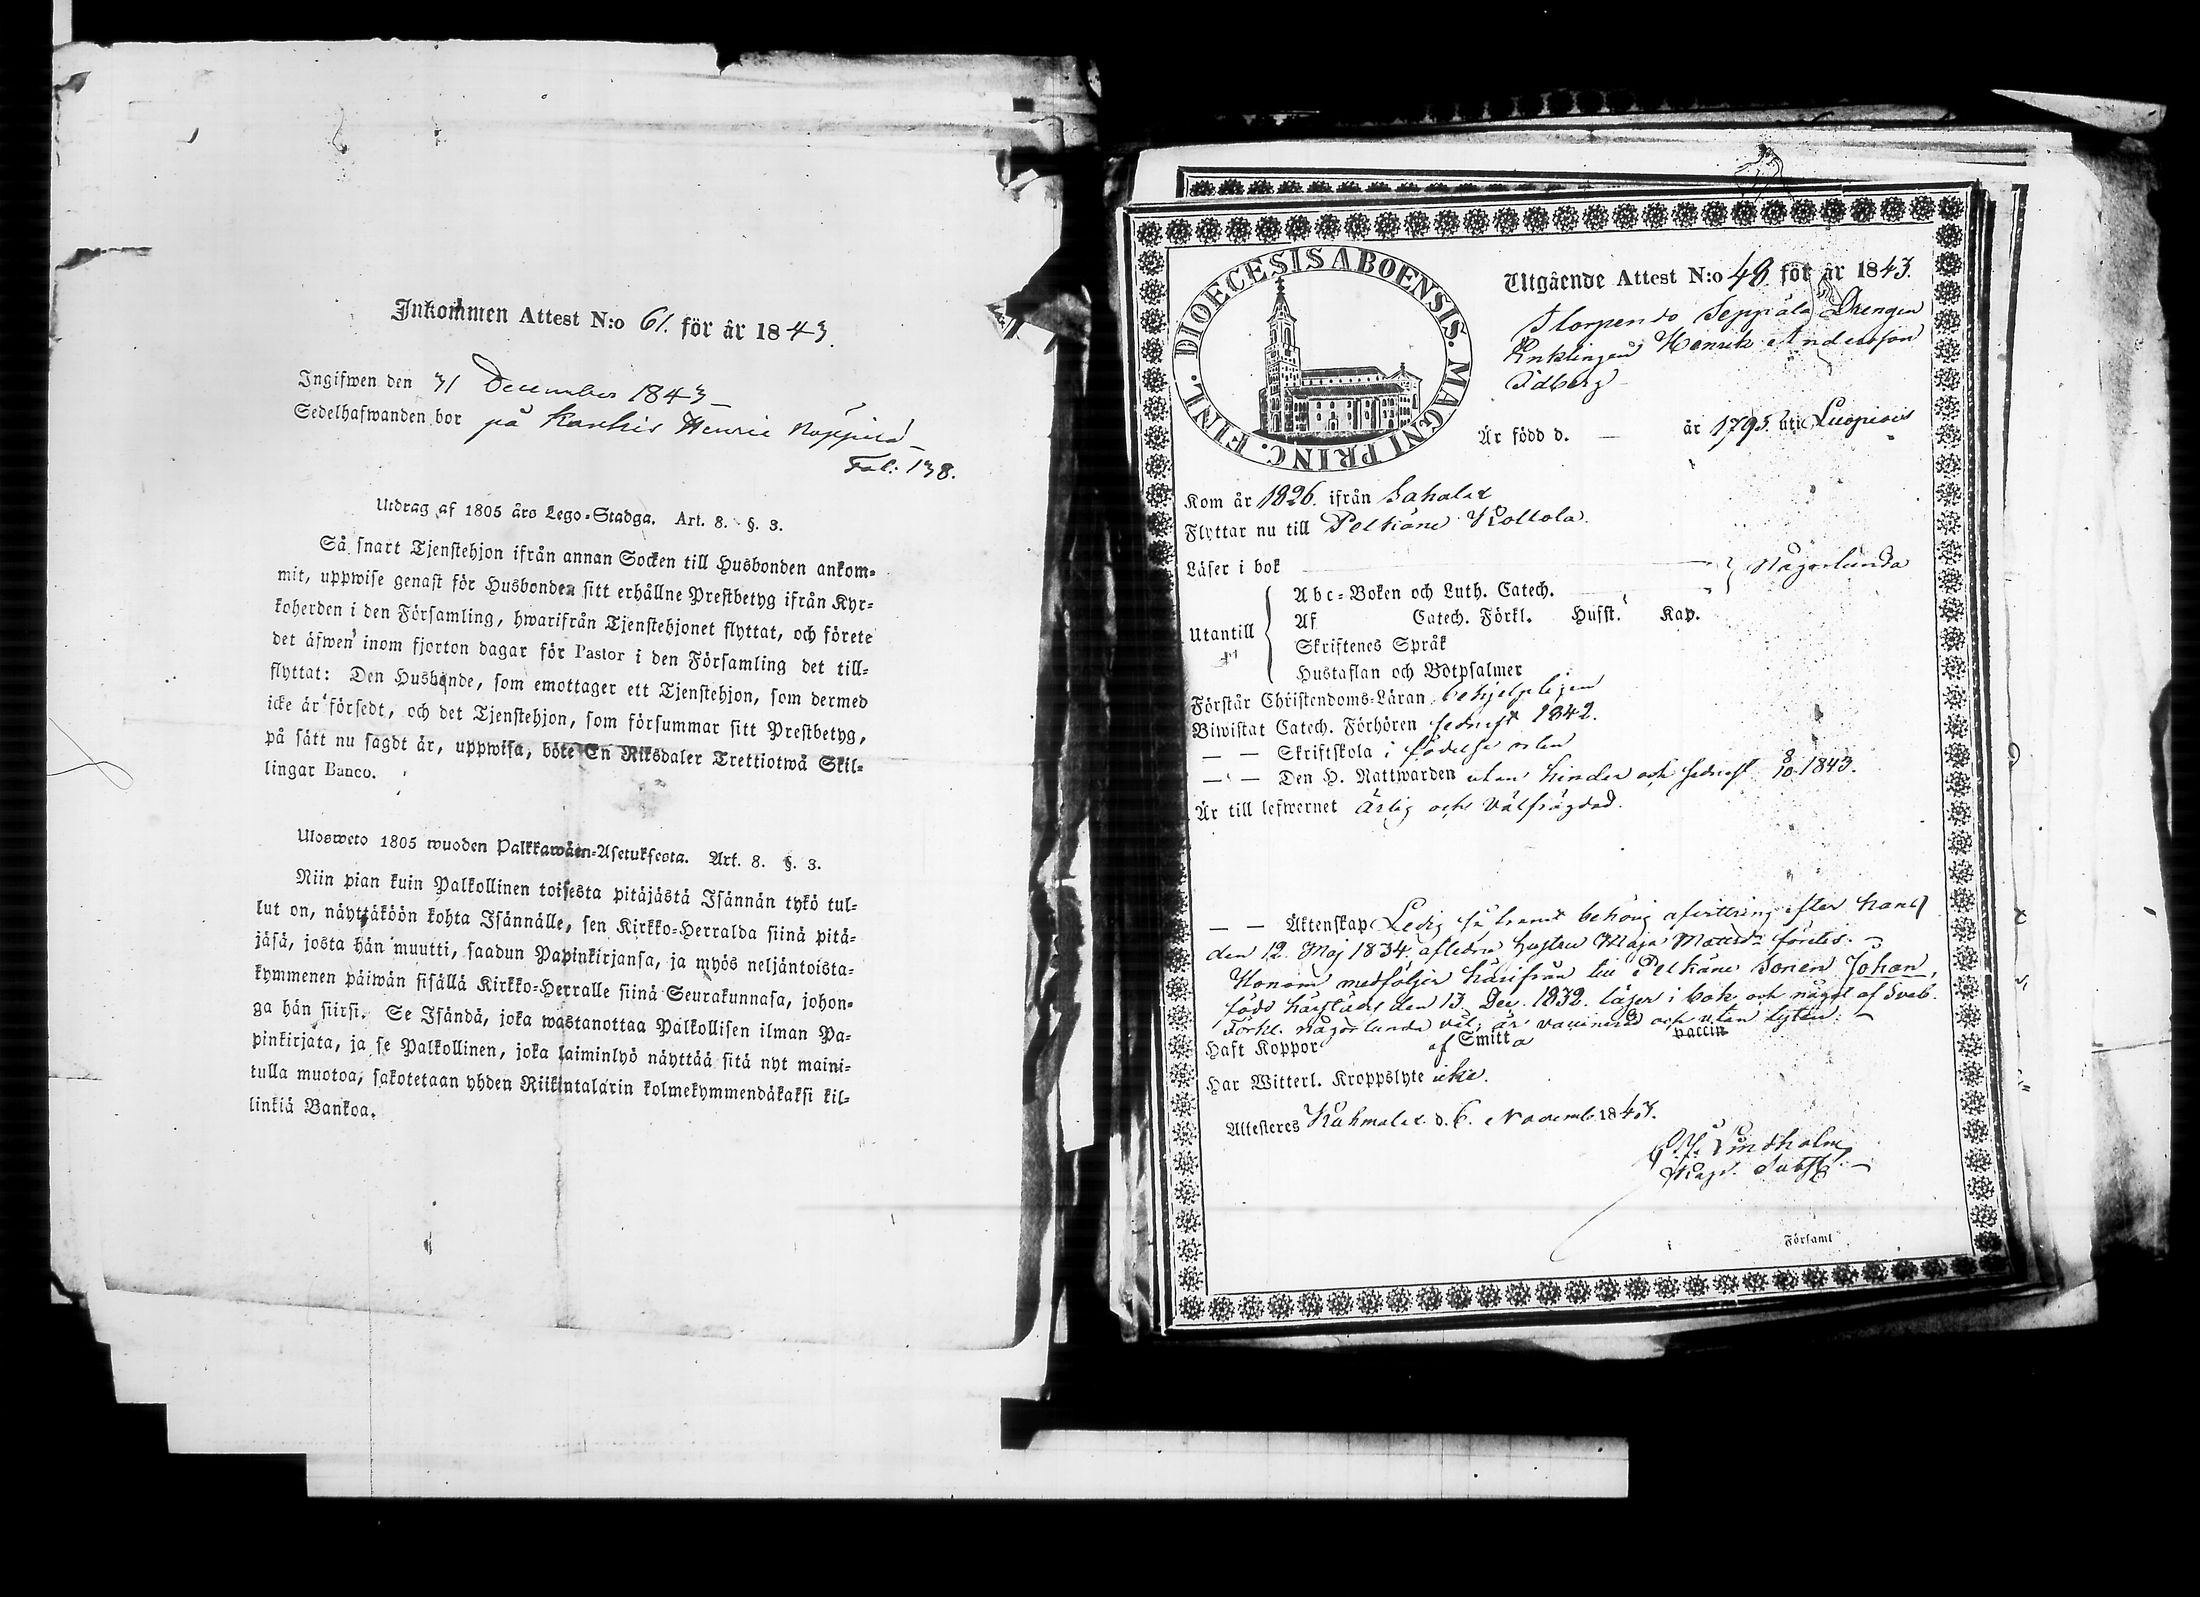 Inkommen Attest N:o 61. för år 1843.
Ingifwen den 31 December 1843
Sedelhafwanden bor på Kankis Henric
Fol: 138.
Utdrag af 1805 års Lego-Stadga. Art. 8. §. 3.
Så snart Tjenstehjon ifrån annan Socken till Husbonden ankom-
mit, uppwise genast för Husbonden sitt erhållne Prestbetyg ifrån Kyr-
koherden i den Församling, hwarifrån Tjenstehjonet flyttat, och förete
det äfwen inom fjorton dagar för Pastor i den Församling det till-
flyttat: Den Husbonde, som emottager ett Tjenstehjon, som dermed
icke är försedt, och det Tjenstehjon, som försummar sitt Prestbetyg,
på sätt nu sagdt är, uppwisa, böte En Riksdaler Trettiotwå Skil-
lingar Banco.
Ulosweto 1805 wuoden Palkkawäen-Asetuksesta. Art. 8. §. 3.
Niin pian kuin Palkollinen toisesta pitäjästä Isännän tykö tul-
lut on, näyttäköön kohta Isännälle, sen Kirkko-Herralda siinä pitä-
jäsä, josta hän muutti, saadun Papinkirjansa, ja myös neljäntoista-
kymmenen päiwän sisällä Kirkko-Herralle siinä Seurakunnasa, johon-
ga hän siirsi. Se Isändä, joka wastanottaa Palkollisen ilman Pa-
pinkirjata, ja se Palkollinen, joka laiminlyö näyttää sitä nyt maini-
tulla muotoa, sakotetaan yhden Riikintalarin kolmekymmendäkaksi kil-
linkiä Bankoa.
DIOECESIS ABOENSIS. MAGNI PRINC. FINL.
Utgående Attest N:o 48 för år 1843.
Seppälä Drengen
Enklingen Henrik Andersson
Idberg
Är född d. — år 1795. uti Luopiois
Kom år 1826. ifrån Sahalax
Flyttar nu till Pelkäne Kollola.
Läser i bok
Någorlunda
Abc-Boken och Luth. Catech.
Utantill
Af Catech. Förkl. Husst. Kap.
Skriftenes Språk
Hustaflan och Botpsalmer
Förstår Christendoms-Läran behjelpligen
Biwistat Catech. Förhören sednast 1842.
— — Skriftskola i födelse orten
— — Den H. Nattwarden utan hinder och sednast 8/10 1843.
Är till lefwernet ärlig och välfrägdad.
— — Äktenskap Ledig så framt behörig afvittring efter hans
den 12. Maj 1834. aflidna hustru Maja Mattsdr företes.
Honom medföljer härifrån till Pelkäne Sonen Johan,
född härstädes den 13 Dec. 1832. läser i bok och något af Sveb.
Förkl. någorlunda väl, är vaccinerad och utan lyten.
Haft Koppor af Smitta vaccin
Har Witterl. Kroppslyte icke.
Attesteres Kuhmalax d. 6. Novemb. 1843.
Lindholm
i Församl